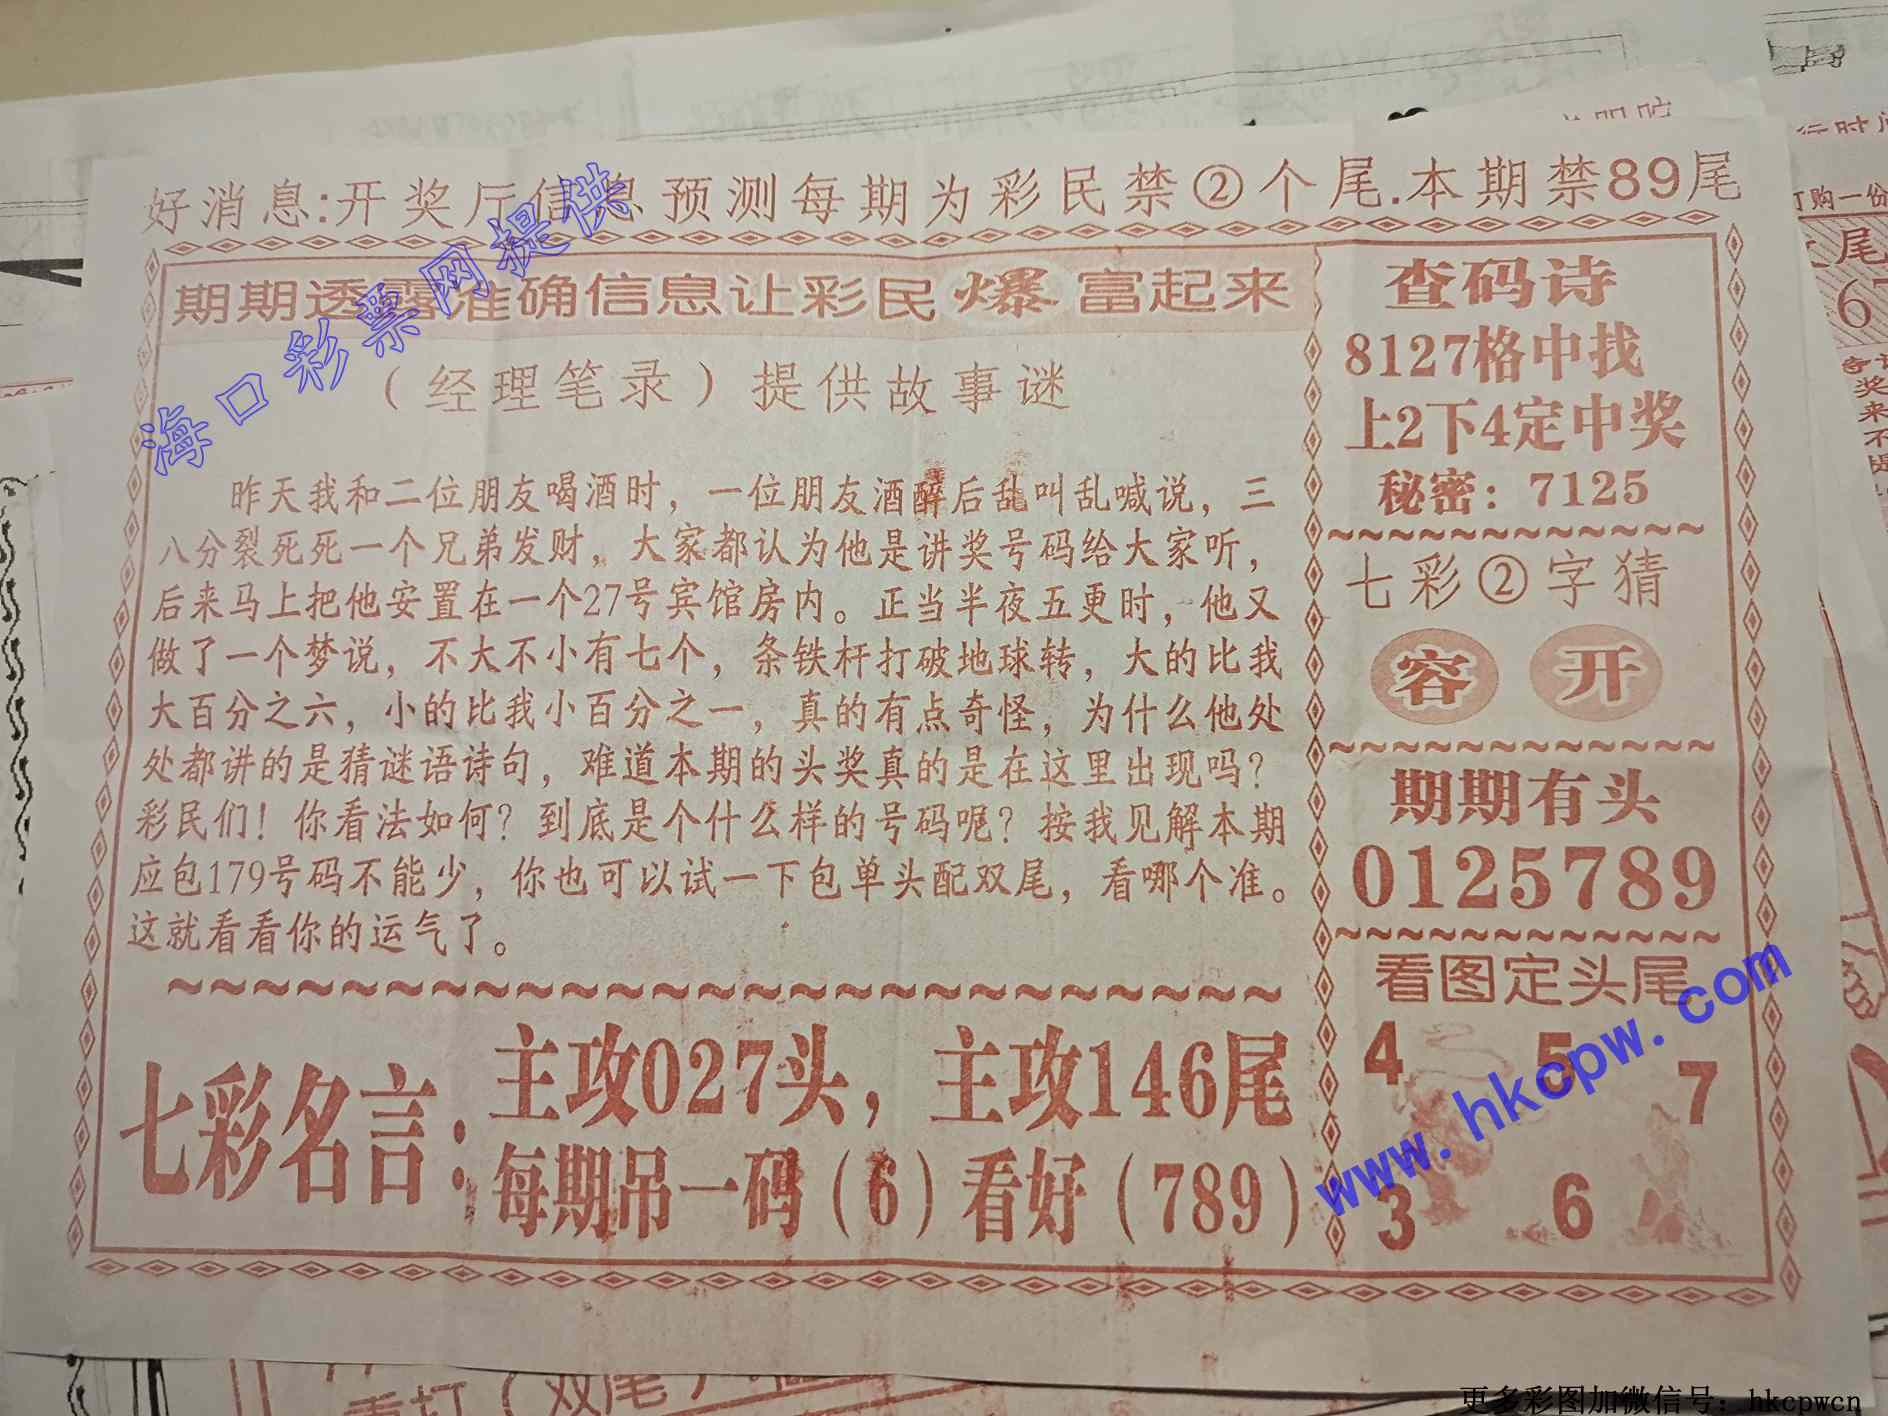 好消息:开奖厅信息预测每期为彩民禁②个尾.本期禁89尾
期期透露准确信息让彩民爆富起来
（经理笔录）提供故事谜
昨天我和二位朋友喝酒时，一位朋友酒醉后乱叫乱喊说，三
八分裂死死一个兄弟发财，大家都认为他是讲奖号码给大家听，
后来马上把他安置在一个27号宾馆房内。正当半夜五更时，他又
做了一个梦说，不大不小有七个，条铁杆打破地球转，大的比我
大百分之六，小的比我小百分之一，真的有点奇怪，为什么他处
处都讲的是猜谜语诗句，难道本期的头奖真的是在这里出现吗？
彩民们！你看法如何？到底是个什么样的号码呢？按我见解本期
应包179号码不能少，你也可以试一下包单头配双尾，看哪个准。
这就看看你的运气了。
七彩名言：
主攻027头，主攻146尾
每期吊一码（6）看好（789）
查码诗
8127格中找
上2下4定中奖
秘密：7125
七彩②字猜
容 开
期期有头
0125789
看图定头尾
4 5 7
3 6
海口彩票网提供
www.hkcpw.com
行时
订购一份
尾
67
奖
来
不
提
重打（双尾）
更多彩图加微信号：hkcpwcn